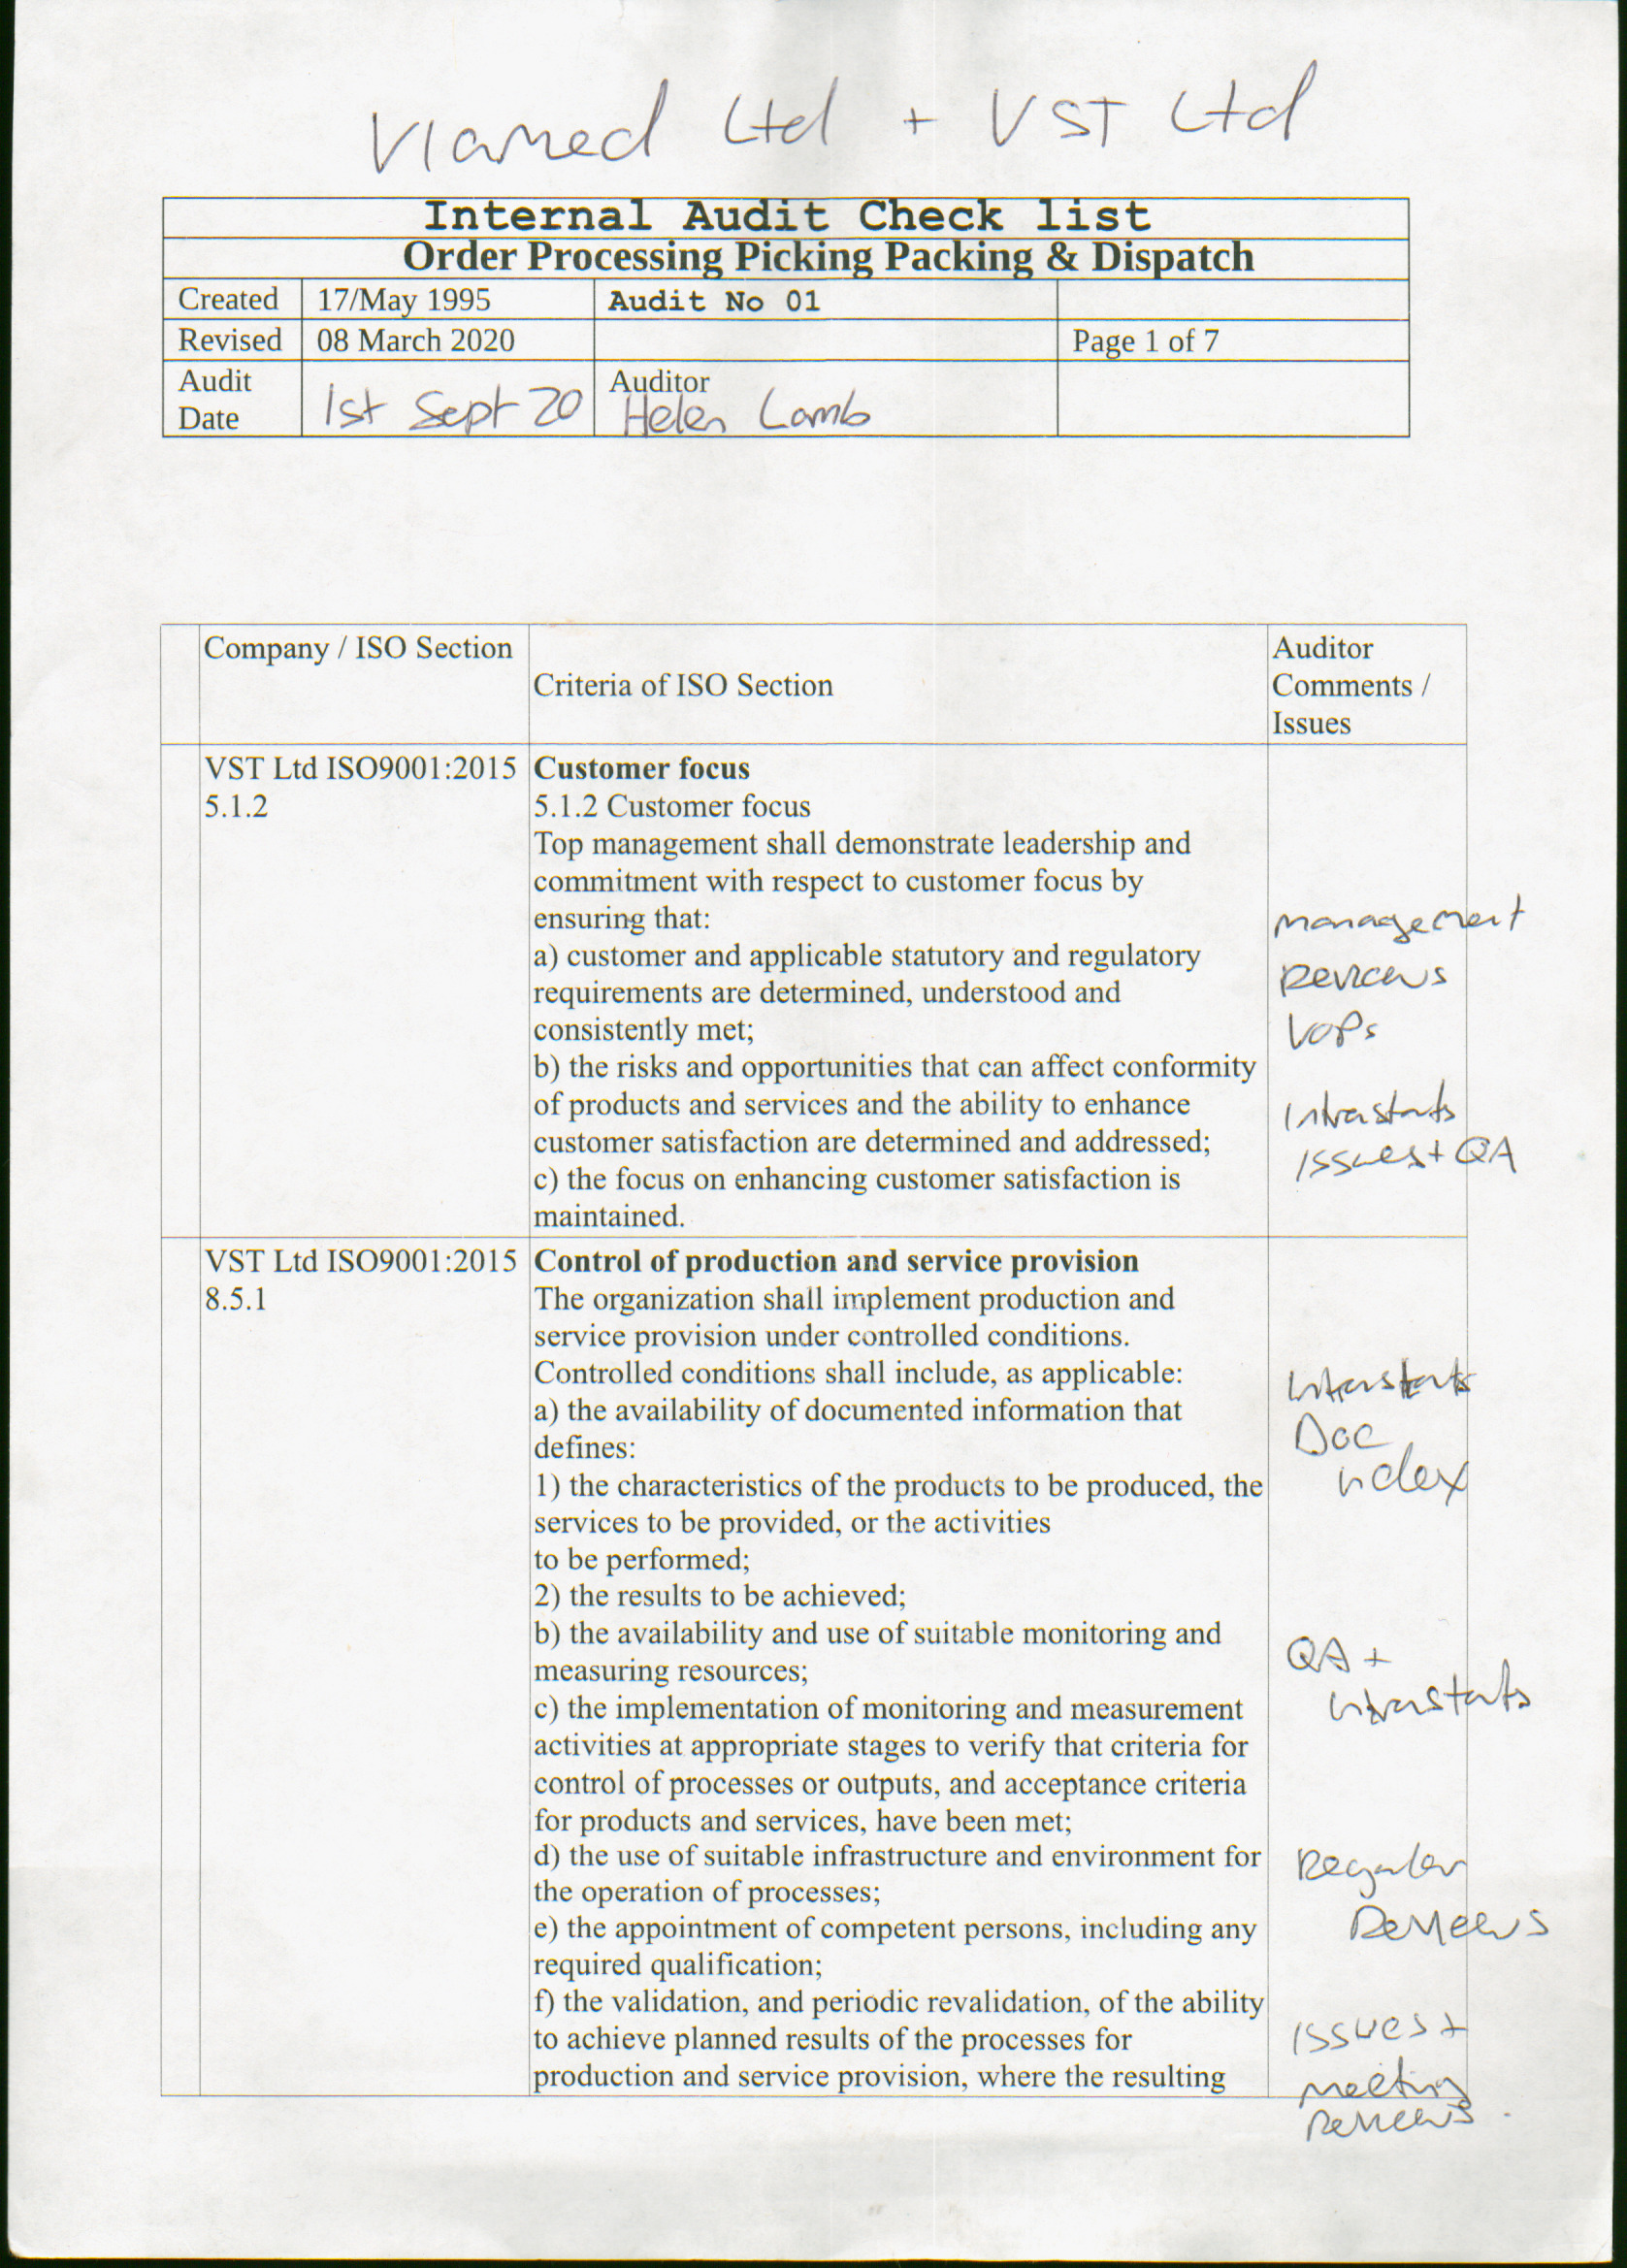 Viamed Ltd + VST Ltd
Internal Audit Check list
Order Processing Picking Packing & Dispatch
Created 17/May 1995 Audit No 01
Revised 08 March 2020 Page 1 of 7
Audit Date 1st Sept 20 Auditor Helen Lamb
Company / ISO Section
Criteria of ISO Section
Auditor
Comments /
Issues
VST Ltd ISO9001:2015
5.1.2
Customer focus
5.1.2 Customer focus
Top management shall demonstrate leadership and
commitment with respect to customer focus by
ensuring that:
a) customer and applicable statutory and regulatory
requirements are determined, understood and
consistently met;
b) the risks and opportunities that can affect conformity
of products and services and the ability to enhance
customer satisfaction are determined and addressed;
c) the focus on enhancing customer satisfaction is
maintained.
management
Reviews
VOPs
Intrastats
Issues + QA
VST Ltd ISO9001:2015
8.5.1
Control of production and service provision
The organization shall implement production and
service provision under controlled conditions.
Controlled conditions shall include, as applicable:
a) the availability of documented information that
defines:
1) the characteristics of the products to be produced, the
services to be provided, or the activities
to be performed;
2) the results to be achieved;
b) the availability and use of suitable monitoring and
measuring resources;
c) the implementation of monitoring and measurement
activities at appropriate stages to verify that criteria for
control of processes or outputs, and acceptance criteria
for products and services, have been met;
d) the use of suitable infrastructure and environment for
the operation of processes;
e) the appointment of competent persons, including any
required qualification;
f) the validation, and periodic revalidation, of the ability
to achieve planned results of the processes for
production and service provision, where the resulting
Intrastats
Doc
index
QA +
Intrastats
Regular
Reviews
Issues +
meeting
Reviews.